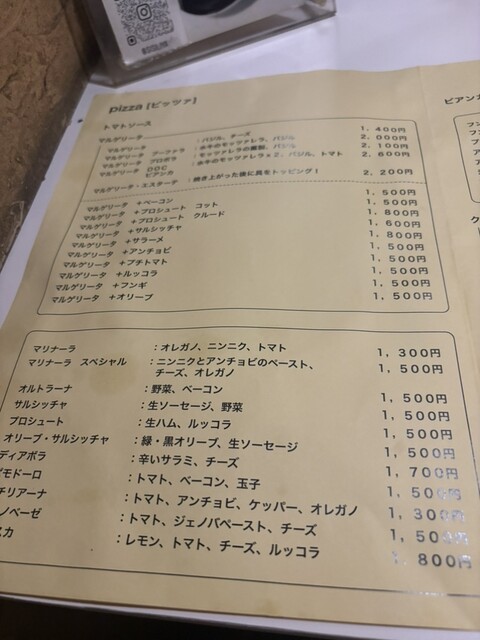 pizza [ピッツァ]
トマトソース
マルゲリータ ：バジル、チーズ 1,400円
マルゲリータ ブーファラ ：水牛のモッツァレラ、バジル 2,000円
マルゲリータ プロボラ ：モッツァレラの燻製、バジル 2,100円
マルゲリータ DOC ：水牛のモッツァレラx2、バジル、トマト 2,600円
ビアンカ
マルゲリータ・エスターテ ：焼き上がった後に具をトッピング！ 2,200円
マルゲリータ ＋ベーコン 1,500円
マルゲリータ ＋プロシュート コット 1,500円
マルゲリータ ＋プロシュート クルード 1,800円
マルゲリータ ＋サルシッチャ 1,600円
マルゲリータ ＋サラーメ 1,800円
マルゲリータ ＋アンチョビ 1,500円
マルゲリータ ＋プチトマト 1,500円
マルゲリータ ＋ルッコラ 1,500円
マルゲリータ ＋フンギ 1,500円
マルゲリータ ＋オリーブ 1,500円
マリナーラ ：オレガノ、ニンニク、トマト 1,300円
マリナーラ スペシャル ：ニンニクとアンチョビのペースト、 1,500円
チーズ、オレガノ
オルトラーナ ：野菜、ベーコン 1,500円
サルシッチャ ：生ソーセージ、野菜 1,500円
プロシュート ：生ハム、ルッコラ 1,500円
オリーブ・サルシッチャ ：緑・黒オリーブ、生ソーセージ 1,500円
ディアボラ ：辛いサラミ、チーズ 1,700円
モドーロ ：トマト、ベーコン、玉子 1,500円
チリアーナ ：トマト、アンチョビ、ケッパー、オレガノ 1,300円
ノベーゼ ：トマト、ジェノバペースト、チーズ 1,500円
スカ ：レモン、トマト、チーズ、ルッコラ 1,800円
ビアンカ